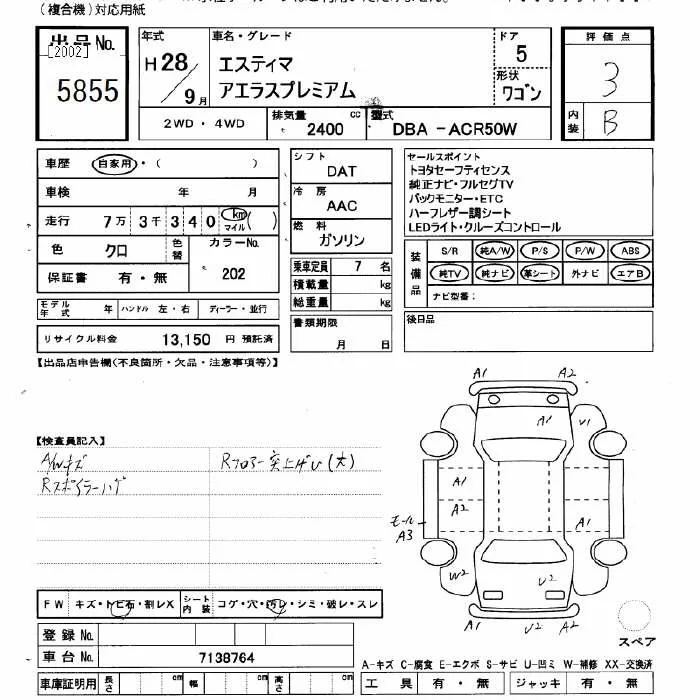 (複合機)対応用紙
出品No.
[2002]
5855
年式
H28/9月
車名・グレード
エスティマ
アエラスプレミアム
ドア
5
形状
ワゴン
評価点
3
内装
B
2WD・4WD
排気量 cc
2400
型式
DBA -ACR50W
車歴 自家用・( )
車検 年 月
走行 7万3千340 km マイル ( )
色 クロ 色替 カラーNo.
202
保証書 有・無
モデル年式 年 ハンドル 左・右 ディーラー・並行
リサイクル料金 13,150 円 預託済
シフト
DAT
冷房
AAC
燃料
ガソリン
乗車定員 7 名
積載量 kg
総重量 kg
書類期限
月 日
セールスポイント
トヨタセーフティセンス
純正ナビ・フルセグTV
バックモニター・ETC
ハーフレザー調シート
LEDライト・クルーズコントロール
装備品
S/R 純A/W P/S P/W ABS
純TV 純ナビ 革シート 外ナビ エアB
ナビ型番:
後日品
【出品店申告欄(不良箇所・欠品・注意事項等)】
【検査員記入】
A/Wキズ
Rスポイラーハゲ
Rフロアー突上げ(大)
A1 A2
A1 V1
A1
A2
モール
A3
A1
W2 U2
A1 U2 A2
スペア
FW キズ・トビ石・割レX シート内装 コゲ・穴・汚レ・シミ・破レ・スレ
登録No.
車台No. 7138764
車庫証明用 長さ cm 幅 cm 高さ cm
A-キズ C-腐食 E-エクボ S-サビ U-凹ミ W-補修 XX-交換済
工具 有・無 ジャッキ 有・無